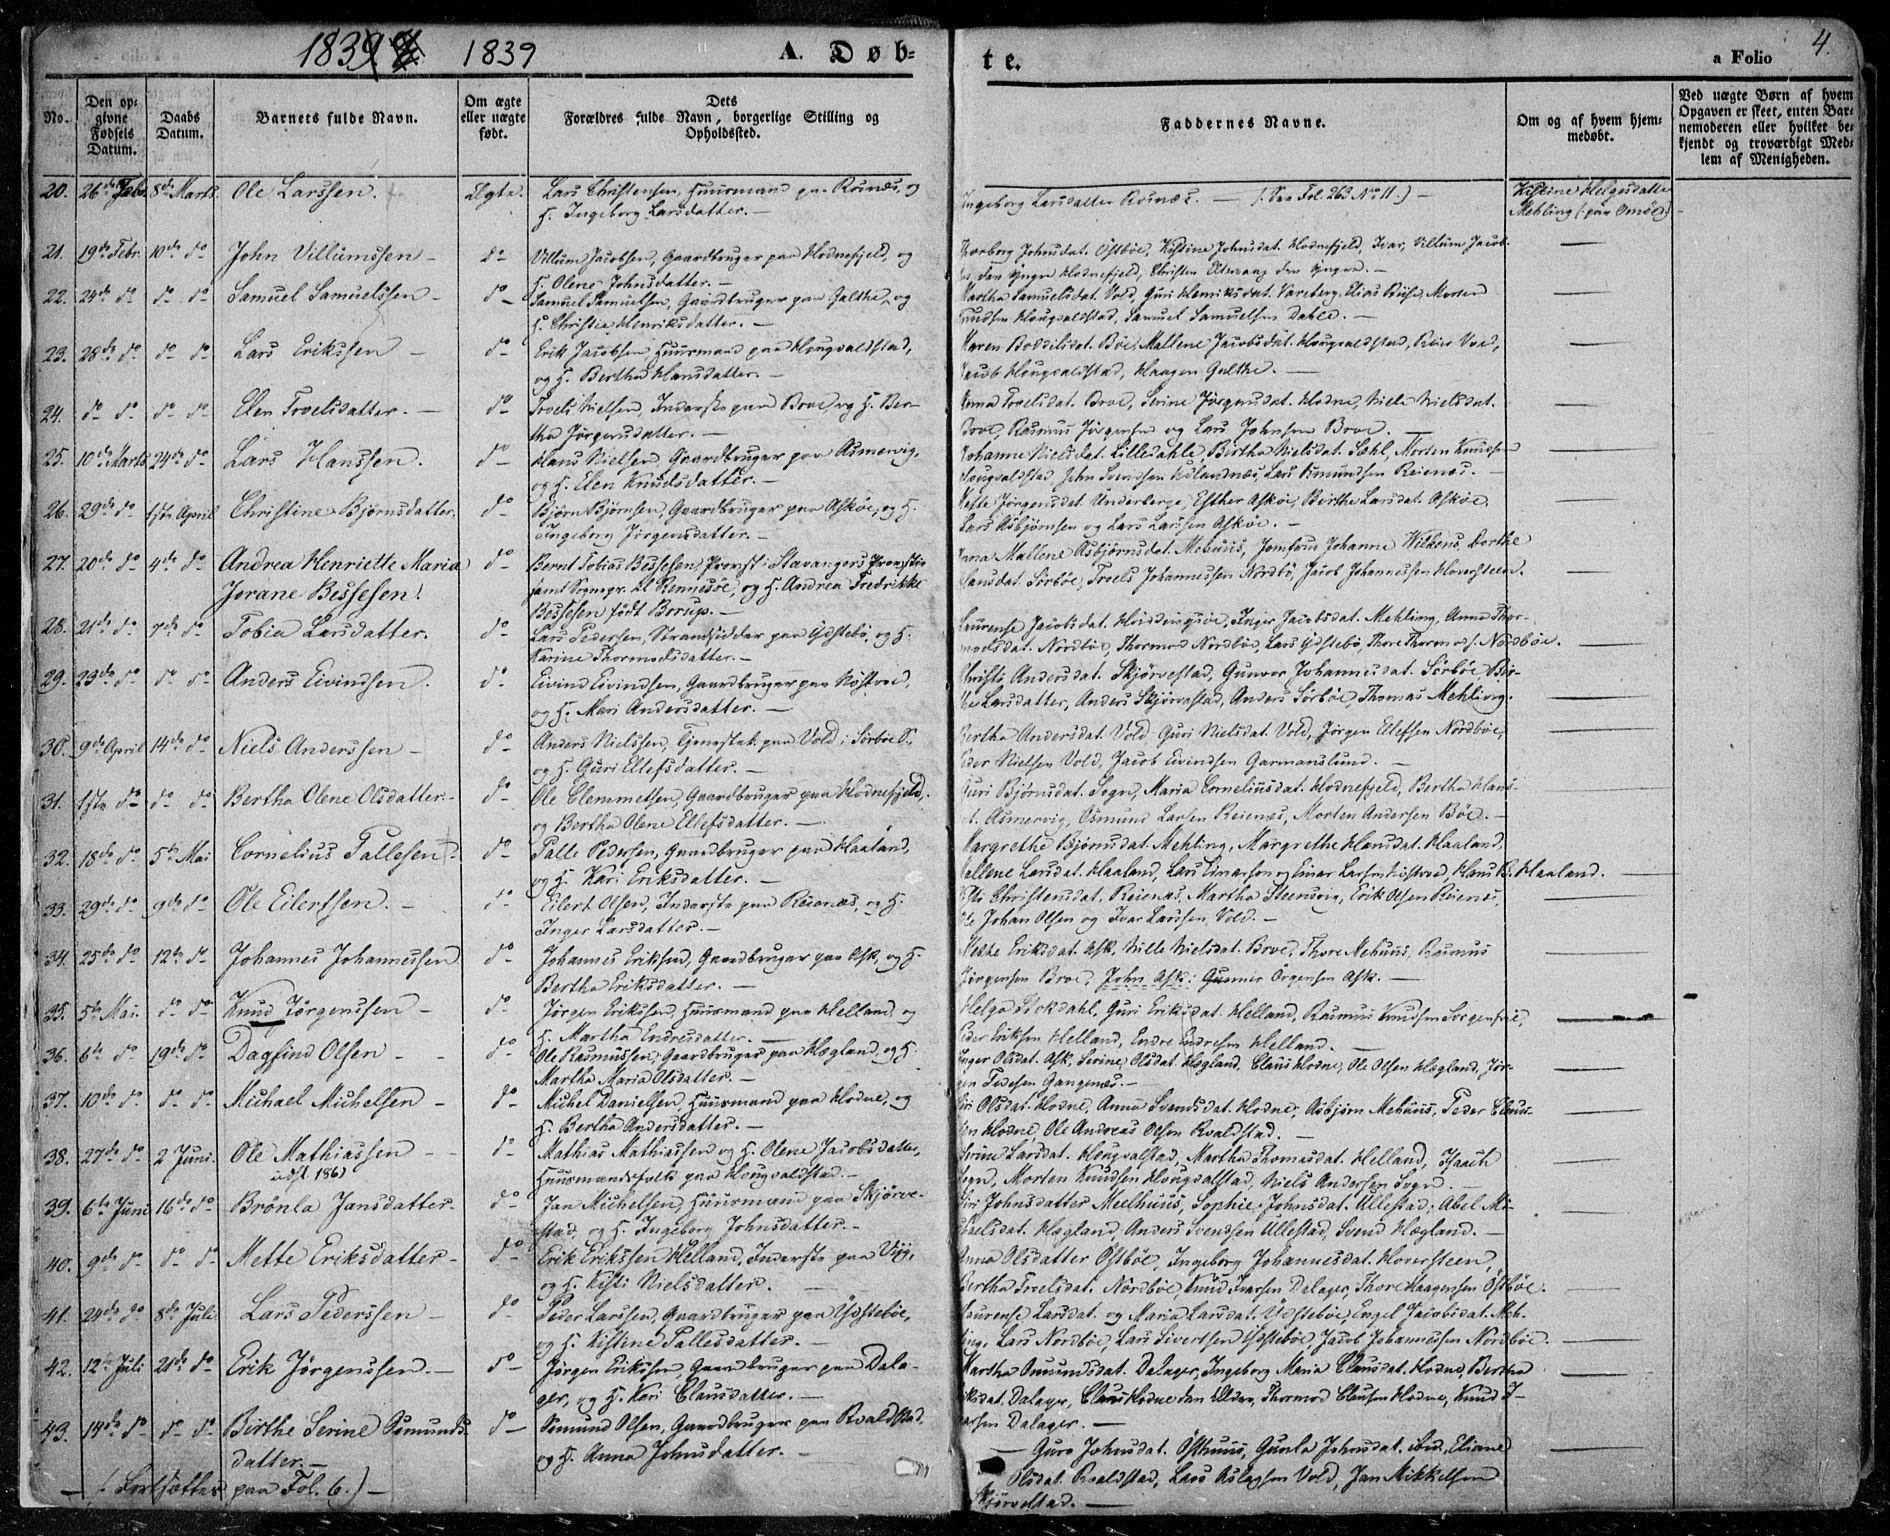 1839 1839 A. Døb-
te. a Folio 4.
No. Den opgivne Fødsels Datum. Daabs Datum. Barnets fulde Navn. Om ægte eller uægte født. Forældres fulde Navn, borgerlige Stilling og Dets Opholdssted.
Faddernes Navne. Om og af hvem hjemmedøbt. Ved uægte Børn af hvem Opgaven er skeet, enten Barnemoderen eller hvilket bekjendt og troværdigt Medlem af Menigheden.
20. 26de Febr. 8de Marts. Ole Larssen. Ægte. Lars Christensen, Huusmand paa Rosnæs, og
H. Ingeborg Larsdatter. —
Ingeborg Larsdatter Rosnæs. — (. See Fol. 263 No 11.) — Kistine Helgesdatter
Mehling (paa Omöe)
21. 19de Febr. 10de do John Villumssen — do Villum Jacobsen, Gaardbruger paa Hodnefjeld, og
H. Olene Johnsdatter. —
Johnsdat. Östbøe, Kistine Johnsdat. Hodnefjeld, Ivar, Villum Jacob-
den Yngre Hodnefjeld, Christen Eltervaag den Yngre. —
22. 24de do do do Samuel Samuelssen — do Samuel Samuelsen, Gaardbruger paa Galthe, og
H. Christie Henriksdatter. —
Martha Samuelsdat. Vold, Guri Henriksdat. Vareberg, Elias Bøe, Morten
Knudsen Hougvaldstad, Samuel Samuelsen Dahle. —
23. 28de do do do Lars Erikssen — do Erik Jacobsen, Huusmand paa Hougvaldstad,
og H. Bertha Hansdatter. —
Karen Boddilsdat. Bøe, Mallene Jacobsdat. Hougvaldstad, Peder Vold,
Jacob Hougvaldstad, Haagen Galthe. —
24. do do do do Elen Troelsdatter. — do Troels Nielsen, Inderste paa Broe, og H. Ber-
tha Jørgensdatter. —
Anna Troelsdat. Broe, Serine Jørgensdat. Hodne, Nille Nielsdat.
Broe, Rasmus Jörgensen og Lars Johnsen Broe. —
25. 10de Marts 24de do Lars Hanssen. do Hans Nielsen, Gaardbruger paa Asmervig,
og H. Elen Knudsdatter. —
Johanne Nielsdat. Lilledahle, Bertha Nielsdat. Sæhl, Morten Knudsen
Hougvaldstad, John Svendsen Lars Osmundsen Reienæs. —
26. 29de do 1ste April Christine Bjørnsdatter. do Bjørn Bjørnsen, Gaardbruger paa Askøe, og H.
Ingeborg Jørgensdatter. —
Jørgensdat. Underberge, Esther Askøe, Birthe Larsdat. Askøe,
Lars Asbjørnsen og Lars Larssen Askøe. —
27. 20de do 4de do Andrea Henriette Maria do Bernt Tobias Bessesen, Provst i Stavangers Provstie
Jorane Bessesen! samt Sognepr. til Rennesøe, og H. Andrea Fredrikke
Bessesen født Borup. —
Anna Mallene Asbjørnsdat. Mehuus, Jomfrue Johanne Wilkens, Berthe
Hansdat. Sörbøe, Troels Johannessen Nordbö, Jacob Johannessen Hovesteen.
28. 21de do 7de do Tobia Larsdatter. do Lars Pedersen, Strandsidder paa Ydstebø, og H.
Karine Thormodsdatter. —
Laurense Jacobsdat. Inger Jacobsdat. Mehling, Anna Thor-
modsdat. Nordbøe, Thormod Nordbøe, Lars Ydstebø, Thore Thormods. Nordbøe.
29. 23de do do do Anders Eivindsen. do Eivind Eivindsen, Gaardbruger paa Nøstvod,
og H. Mari Andersdatter. —
Christi Andersdat. Skjørvestad, Gunvor Johannesdat. Sörbøe, Bir-
the Larsdatter, Anders Skjørvestad, Anders Sörbøe, Thomas Mehling.
30. 9de April 14de do Niels Anderssen — do Anders Nielssen, Tjenestek. paa Vold i Sörbøe S.,
og H. Guri Ellefsdatter. —
Bertha Andersdat. Vold, Guri Nielsdat. Vold, Jörgen Ellefsen Nordbøe,
Peder Nielsen Vold, Jacob Eivindsen Garmanslund. —
31. 1ste do do do Bertha Olene Olsdatter. — do Ole Clemmetsen, Gaardbruger paa Hodnefjeld,
og Bertha Olene Ellefsdatter. —
Guri Bjørnsdat. Sogn, Maria Corneliusdat. Hodnefjeld, Bertha Hans-
Asmervig, Osmund Larsen Reienæs, Morten Andersen Bøe. —
32. 18de do 5te Mai Cornelius Pallesen do Palle Pedersen, Gaardbruger paa Haaland,
og H. Kari Eriksdatter. —
Margrethe Bjørnsdat. Mehling, Margrethe Hansdat. Haaland,
Mallene Larsdat. Haaland, Lars Einarsen og Einar Larsen Haaland.
33. 29de do 9de do Ole Eilertsen. — do Eilert Olsen, Inderste paa Reienæs, og H.
Inger Larsdatter. —
Christensdat. Reienæs, Martha Steensvig, Erik Olsen Reienæs,
Johan Olsen og Ivar Larssen Vold. —
34. 25de do 12te do Johannes Johannessen do Johannes Eriksen, Gaardbruger paa Ask, og H.
Bertha Eriksdatter. —
Mette Eriksdat. Ask, Nille Nielsdat. Broe, Thore Mehuus, Rasmus
Jörgensen Broe, John Ask: Gunner Örgensen Ask. —
35. 5te Mai. do do Knud Jørgenssen — do Jørgen Erikssen, Huusmand paa Helland, og
H. Martha Endresdatter. —
Helga Guri Eriksdat. Helland, Rasmus Knudsen Sorgenfrie,
Peder Eriksen Helland, Endre Endresen Helland. —
36. 6te do 19de do Dagfind Olsen — do Ole Rasmussen, Gaardbruger paa Hægland, og H.
Martha Maria Olsdatter. —
Inger Olsdat. Ask, Serine Olsdat. Hægland, Claus Hodne, Ole Olsen Hægland, Jör-
gen Pedersen Gangenæs. —
37. 10de do do do Michael Michelsen — do Michel Danielsen, Huusmand paa Hodne, og
H. Bertha Andersdatter. —
Olsdat. Hodne, Anna Svendsdat. Hodne, Asbjørn Mehuus, Peder Claus-
sen Hodne, Ole Andreas Olsen Roaldstad. —
38. 27de do 2 Juni. Ole Mathiassen — do Mathias Mathiassen og H. Olene Jacobsdatter,
udst. 1861 Huusmandsfolk paa Hougvaldstad. —
Serine Larsdat. Hougvalstad, Martha Thomasdat. Helland, Isaach
Sogn, Morten Knudsen Hougvalstad, Niels Andersen Sogn. —
39. 6te Juni 16de do Brönla Jansdatter — do Jan Michelsen, Huusmand paa Skjørve-
stad, og H. Ingeborg Johnsdatter. —
Siri Johnsdatter Meelhuus, Sophie Johnsdat. Ullestad, Abel Mi-
chaelsdat. Hægland, Anders Svendsen Ullestad, Svend Hægland. —
40. 9de do do do Mette Eriksdatter — do Erik Erikssen Helland, Inderste paa Vige,
og H. Kisti Nielsdatter. —
Anna Olsdatter Östbøe, Ingeborg Johannesdat. Hovesteen,
Bertha Troelsdat. Nordbøe, Knud Ivarsen Dalager, Thore Haagensen Östbøe.
41. 24de do 8de Juli Lars Pederssen — do Peder Larssen, Gaardbruger paa Ydstebøe,
og H. Kistine Pallesdatter. —
Laurense Larsdat. og Maria Larsdat. Ydstebøe, Engel Jacobsdat. Meh-
ling, Lars Nordbøe, Lars Sivertsen Ydstebøe, Jacob Johannessen Nordbøe.
42. 12te Juli 21de do Erik Jørgenssen. — do Jørgen Erikssen, Gaardbruger paa Dala-
ger, og H. Kari Clausdatter. —
Martha Omundsdat. Dalager, Ingeborg Maria Clausdat. Hodne, Bertha
Eriksdat. Dalager, Claus Hodne den Eldre, Thormod Clausen Hodne, Knud I-
varsen Dalager. —
43. 14de do do do Birthe Serine Sömunds- do Sömund Olsen, Gaardbruger paa Roaldstad,
datter. — og H. Anna Johnsdatter. —
— Guro Johnsdat. Östhuus, Gunla Johnsdat. ibid, Eliane
Olsdat. Roaldstad, Lars Aslagsen Vold, Jan Mikkelsen
Skjørvestad. —
— (. Fortsættes paa Fol. 6.) —